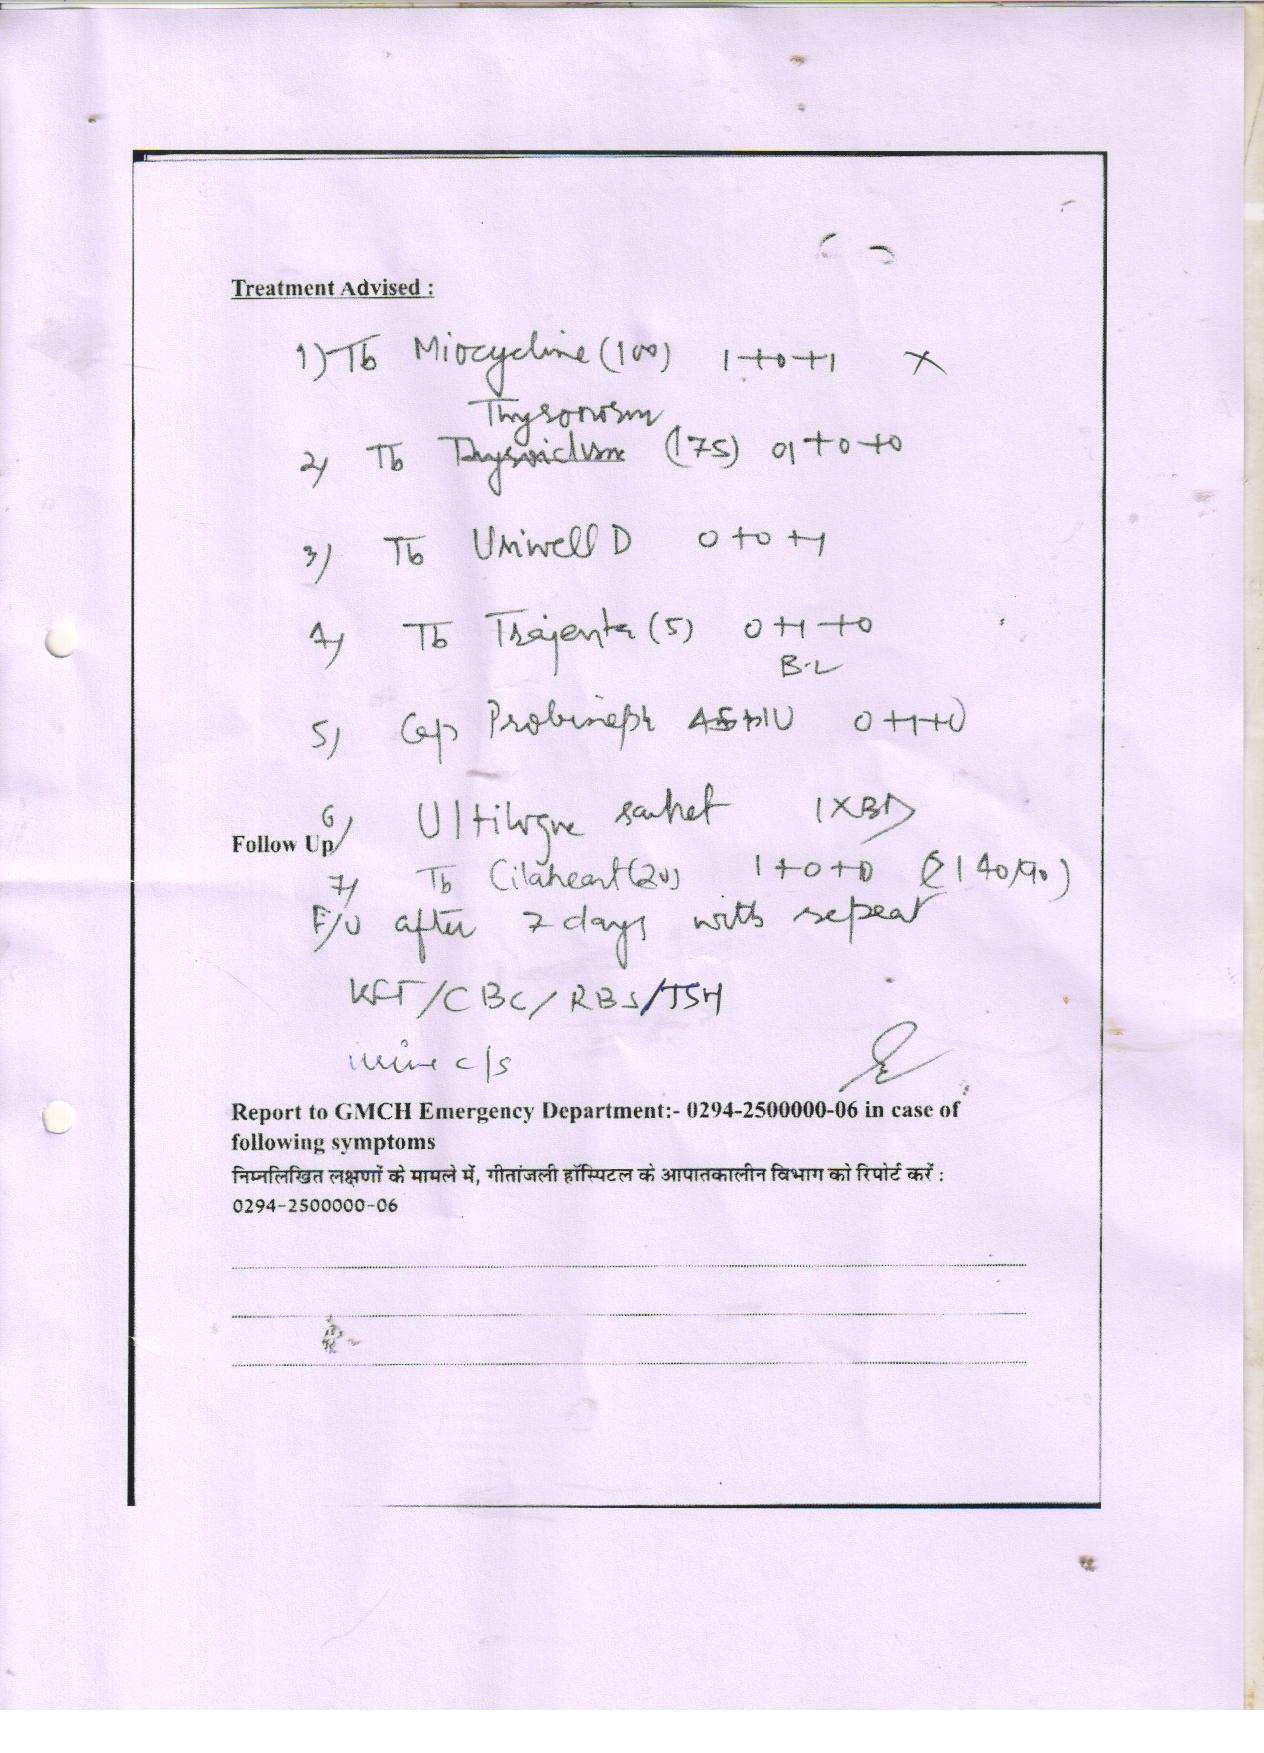 Treatment Advised :
1) Tb Miocycline (100) 1+0+1 X
Thysonorm
2) Tb (175) 01+0+0
3) Tb Uriwell D 0+0+1
4) Tb Trajenta (5) 0+1+0
B.L
5) Cap 0+1+0
6) sachet 1XBD
Follow Up
7) Tb Cilaheart (20) 1+0+0 140/90)
F/U after 7 days with repeat
KFT/CBC/RBS/TSH
urine c/s
Report to GMCH Emergency Department:- 0294-2500000-06 in case of
following symptoms
निम्नलिखित लक्षणों के मामले में, गीतांजली हॉस्पिटल के आपातकालीन विभाग को रिपोर्ट करें :
0294-2500000-06